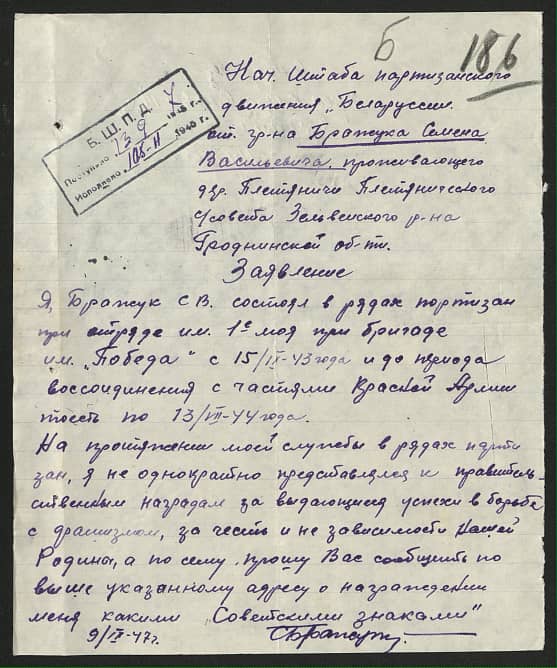 Б 186
Б. Ш. П. Д.
Поступило 139
Исполнено 108-II 1940 г.
Нач. Штаба партизанского
движения „Беларуссии.
от гр-на Бражука Семена
Васильевича, проживающего
дер. Пестяничи Пестяничского
с/совета Зельвенского р-на
Гроднинской об-ти.
Заявление
Я, Бражук С В. состоял в рядах портизан
при отряде им. 1е мая при бригаде
им. „Победа" с 15/IX-43 года и до периода
воссоидинения с частями Красной Армии
тоесть по 13/VII-44 года.
На протяжении моей службы в рядах парти
зан, я не однократно представлялся к правитель-
ственным наградам за выдающиеся успехи в борьбе
с фашизмом, за честь и не зависимость Нашей
Родины, а по сему прошу Вас сообщить по
выше указанному адресу о награждении
меня какими „Советскими знаками"
9/IX-47г. Бражук